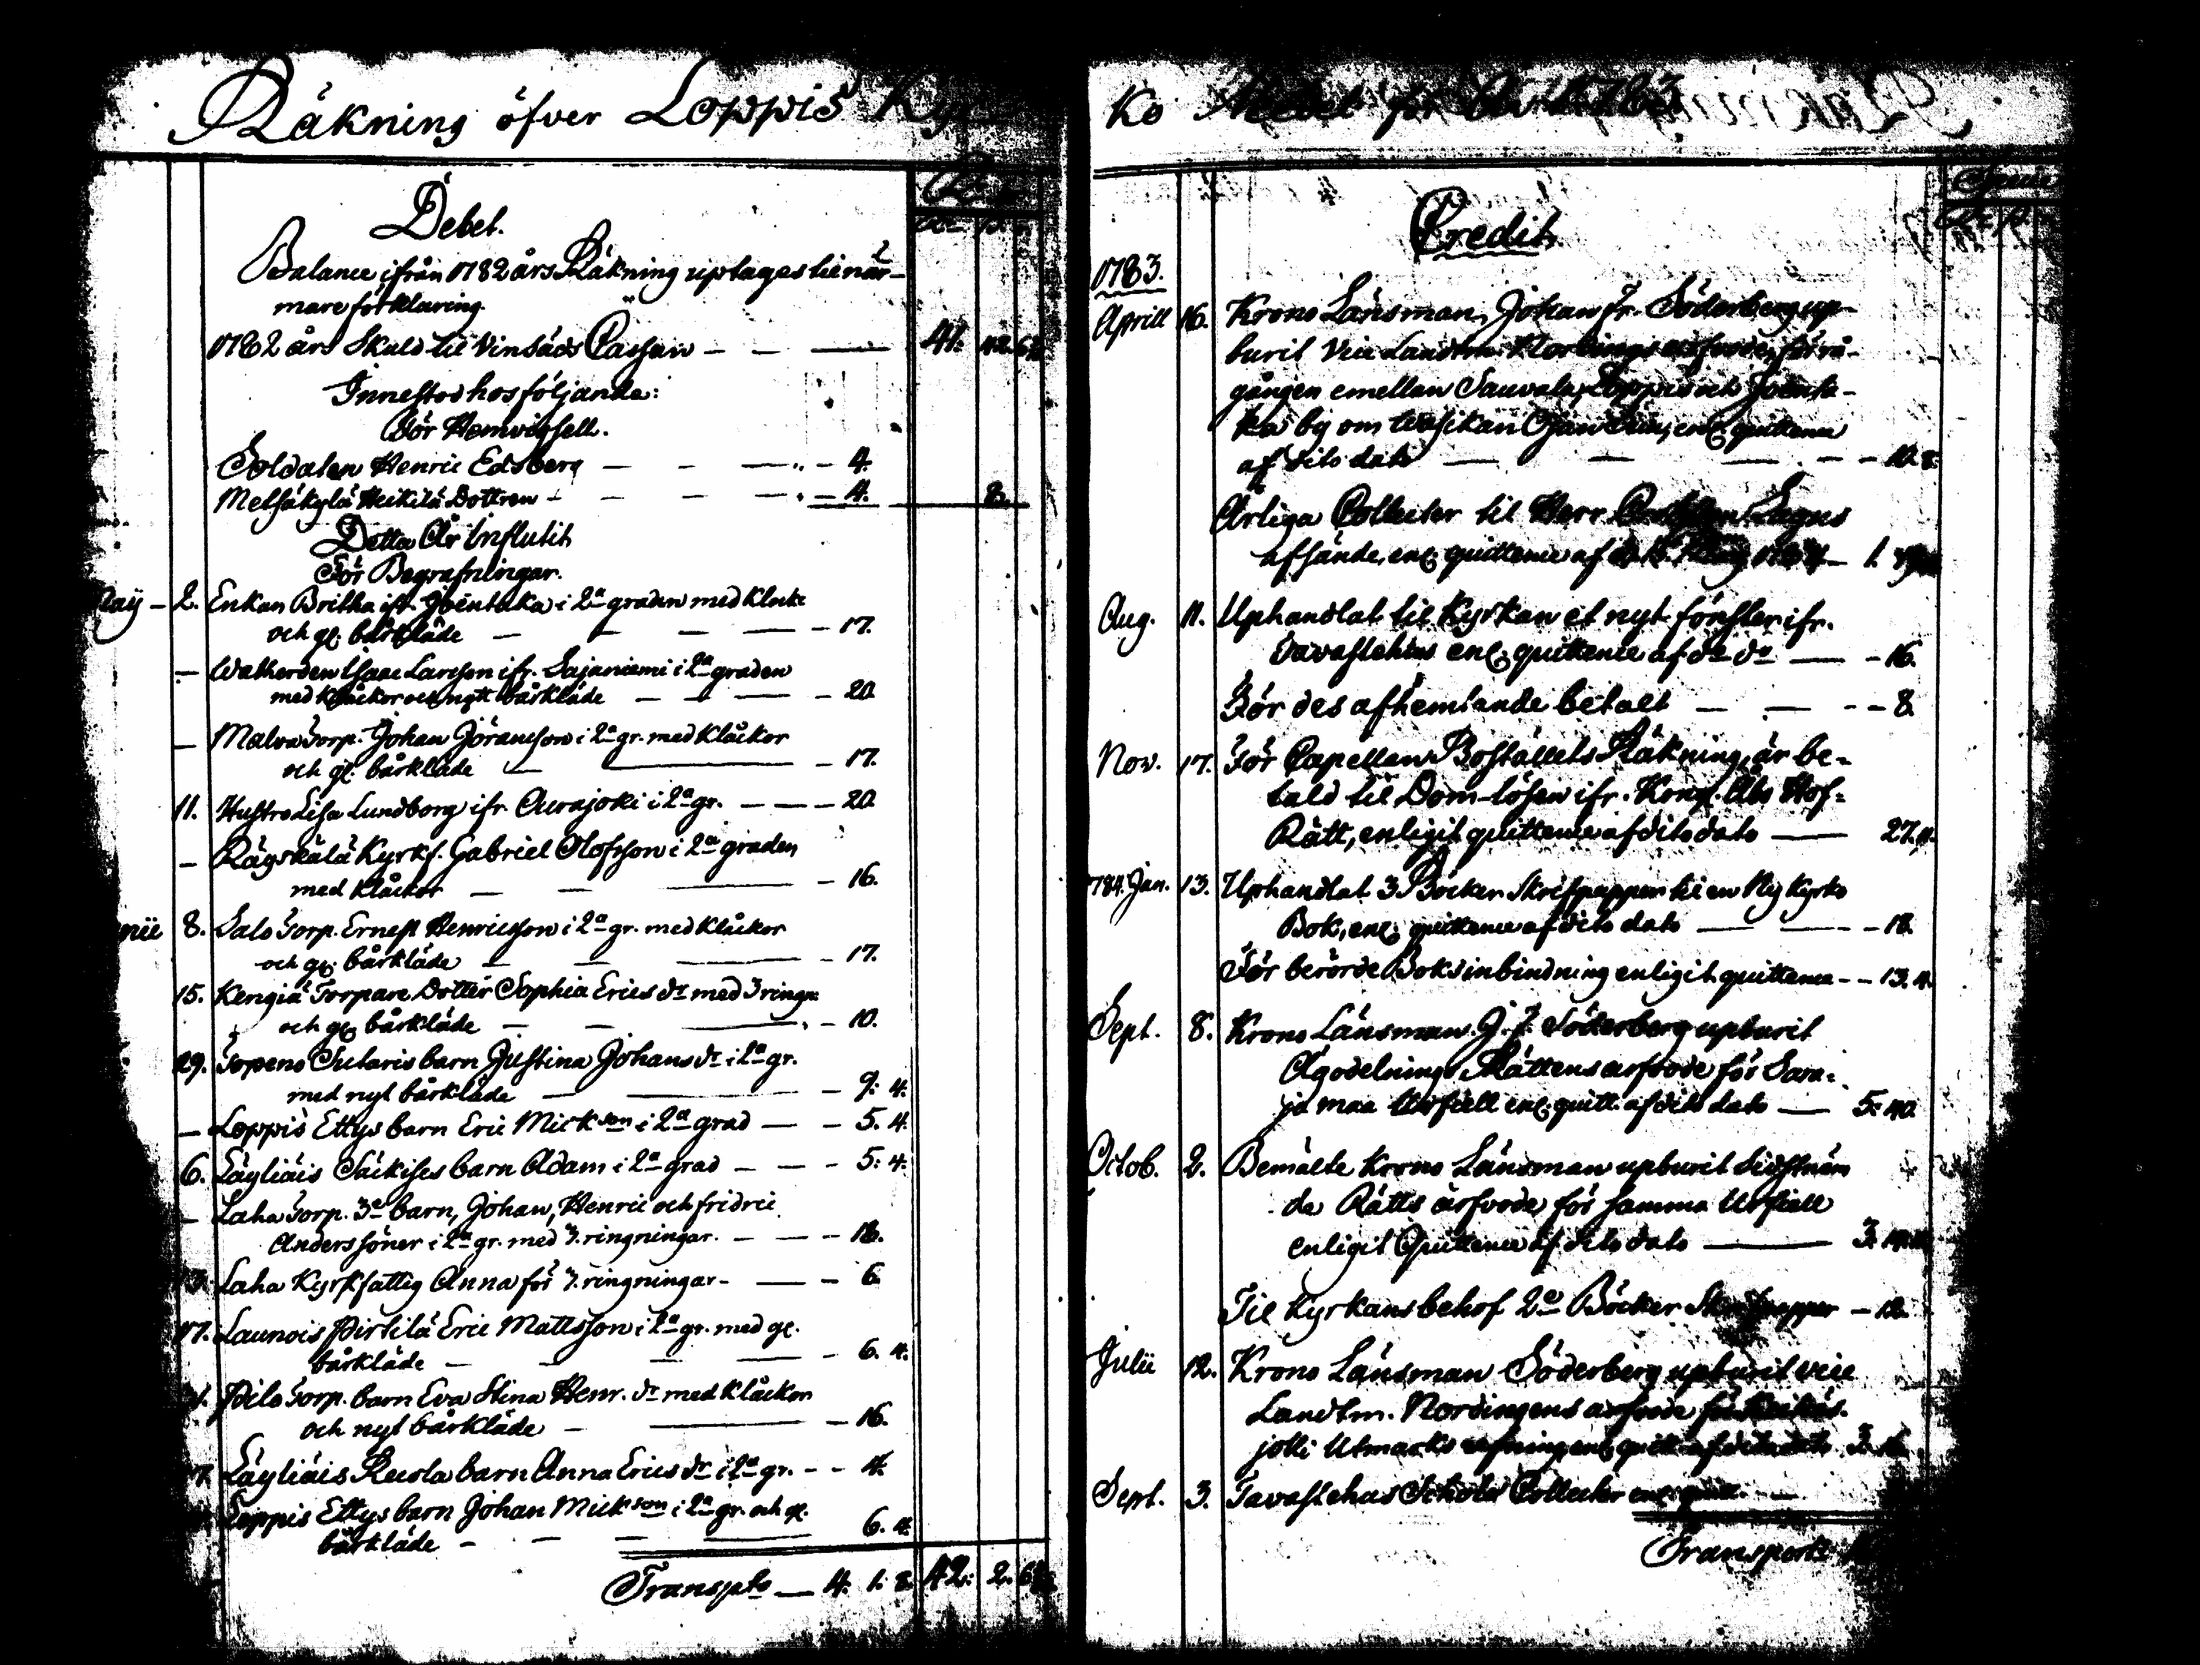 Räkning öfver Loppis Kyr
Debet.
Balance ifrån 1782 års Räkning uptages til när-
mare förklaring
1782 års Skuld til Vinsäds Cassan — — — 41. 42. 6
Innestod hos följande:
För Hemvigsell.
Soldaten Henric Edsberg — — — 4.
Metsäkylä Heikilä Dottren — — — 4. 8.
Detta År Influtit
För Begrafningar.
May — 2. Enkan Britha ifr. Joentaka i 2a graden med Klocka
och gl. bårkläde — — — 17.
— Isaac Larsson ifr. Sajaniemi i 2a graden
med Klåckor och nytt bårkläde — — — 20
— Malva Torp. Johan Jöransson i 2a gr. med Klåckor
och gl. bårkläde — — 17.
11. Hustro Lisa Lundborg ifr. Aurajoki i 2a gr. — — 20
— Rägskälä Kyrkf. Gabriel Olofsson i 2a graden
med Klåckor — — — 16.
8. Salo Torp. Ernest Henricsson i 2a gr. med Klåckor
och gl. bårkläde — — — 17.
15. Kengiä Torpare Dotter Sophia Erics dr med 3 ringn
och gl. bårkläde — — — 10.
29. Topeno Sutaris barn Justina Johans dr i 2a gr.
med nyt bårkläde — — 9: 4.
— Loppis Ettys barn Eric Mickson i 2a grad — — 5. 4.
6. Läyliäis Säikises barn Adam i 2a grad — — 5: 4.
— Laha Torp. 3e barn, Johan, Henric och fridric
Anders söner i 2a gr. med 3. ringningar. — — 18.
Laha Kyrkfattig Anna för 3. ringningar — — 6.
17. Launois Pirtilä Eric Mattsson i 2a gr. med gl.
bårkläde — — — 6. 4.
Pilo Torp. barn Eva Stina Henr. dr med Klåckor
och nyt bårkläde — — 16.
7. Läyliäis Ruola barn Anna Erics dr i 2a gr. — — 4.
Loppis Ettys barn Johan Mickson i 2a gr. och gl.
bårkläde — — — 6. 4.
Transpto — 4. 1. 8. 42. 2. 6
ko
Credit.
1783.
Aprill 16. Krono Länsman Johan Fr. Söderberg up-
burit Vice Landtm. arfvode för rå-
gången emellan Sauvala, Loppis och Joenta-
ka by om enl. quittence
af dito dato — — — 10. 8.
Årliga Collecter til Herr
afsände, enl. quittence af — 1.
Aug. 11. Uphandlat til Kyrkan et nyt fönster ifr.
Tavastehus enl. quittence af do do — 16.
För des afhemtande betalt — — 8.
Nov. 17. För Capellans Boställets Räkning, är be-
tald til Dom-lösen ifr. Kongl. Åbo Hof-
Rätt, enligit quittence af dito dato — 27.
784. Jan. 13. Uphandlat 3 Böcker Skrifpapper til en Ny Kyrko
Bok, enl. quittence af dito dato — — 18.
För berörde Boks inbindning enligit quittence — 13. 4.
Sept. 8. Krono Länsman J. F. Söderberg upburit
Ägodelnings Rättens arfvode för Sara-
jo maa Urfiell enl. quitt. af dito dato — 5: 40.
Octob. 2. Bemälte Krono Länsman upburit sidstnäm
da Rätts arfvode för samma Urfiell
enligit Quittence af dito dato — 3:
Til Kyrkans behof 2e Böcker Skrifpapper — 12.
Julii 12. Krono Länsman Söderberg upburit vice
Landtm. Nordingens arfvode
jolli Utmarks refning enl. quitt. af dito dato 3.
Sept. 3. Tavastehus Schola Collecter enl. quitt.
Transport: